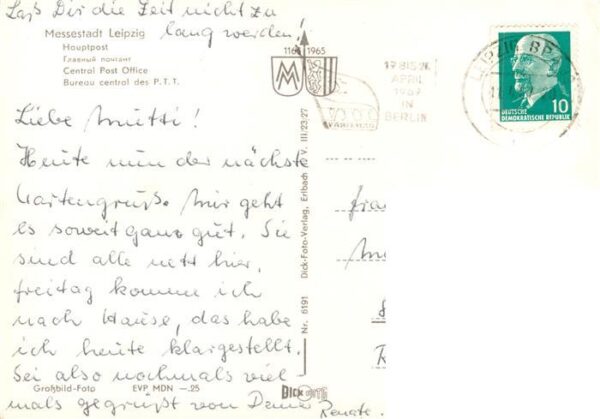 Laß Dir die Zeit nicht zu
lang werden!
Messestadt Leipzig
Hauptpost
Главный почтамт
Central Post Office
Bureau central des P.T.T.
1165 1965
19. BIS 26.
APRIL
1967
IN
BERLIN
LEIPZIG
10
DEUTSCHE
DEMOKRATISCHE REPUBLIK
Liebe Mutti!
Heute nun der nächste
Kartengruß. Mir geht
es soweit ganz gut. Sie
sind alle nett hier,
freitag komme ich
nach Hause, das habe
ich heute klargestellt.
Sei also nochmals viel
mals gegrüßt von Deiner Renate.
Großbild-Foto EVP MDN -.25
Nr. 6191 Dick-Foto-Verlag, Erlbach i. V. III/23/27
DICK FOTO